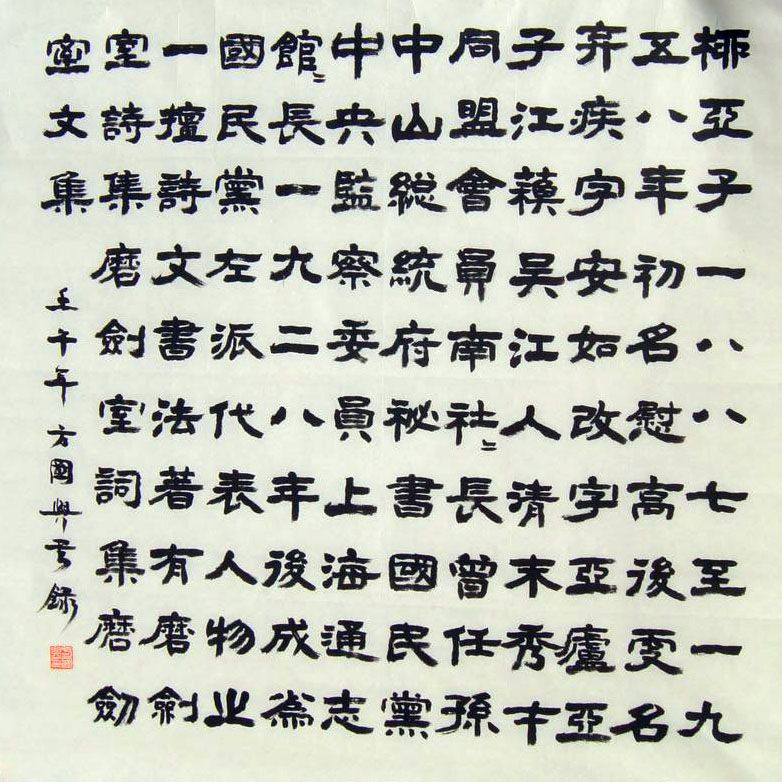 柳亞子一八八七至一九
五八年初名慰高後更名
弃疾字安如改字亞廬亞
子江蘓吴江人清末秀才
同盟會員南社〻長曾任孫
中山總統府祕書國民黨
中央監察委員上海通志
館〻長一九二八年後成為
國民黨左派代表人物之
一擅詩文書法著有磨劍
室詩集磨劍室詞集磨劍
室文集
壬午年方國興書錄